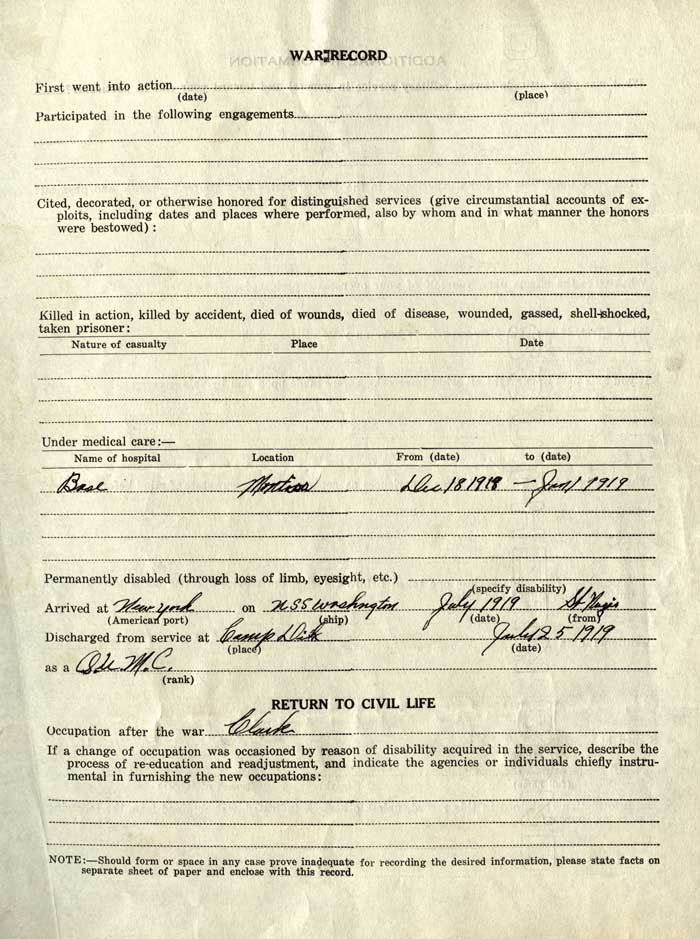 WAR RECORD
First went into action
(date) (place)
Participated in the following engagements
Cited, decorated, or otherwise honored for distinguished services (give circumstantial accounts of ex-
ploits, including dates and places where performed, also by whom and in what manner the honors
were bestowed) :
Killed in action, killed by accident, died of wounds, died of disease, wounded, gassed, shell-shocked,
taken prisoner:
Nature of casualty Place Date
Under medical care:—
Name of hospital Location From (date) to (date)
Base Dec 18 1918 – Jan 1 1919
Permanently disabled (through loss of limb, eyesight, etc.)
(specify disability)
Arrived at New York on USS Washington July 1919
(American port) (ship) (date) (from)
Discharged from service at Camp Dix July 25 1919
(place) (date)
as a Q M. C.
(rank)
RETURN TO CIVIL LIFE
Occupation after the war Clark
If a change of occupation was occasioned by reason of disability acquired in the service, describe the
process of re-education and readjustment, and indicate the agencies or individuals chiefly instru-
mental in furnishing the new occupations:
NOTE:—Should form or space in any case prove inadequate for recording the desired information, please state facts on
separate sheet of paper and enclose with this record.